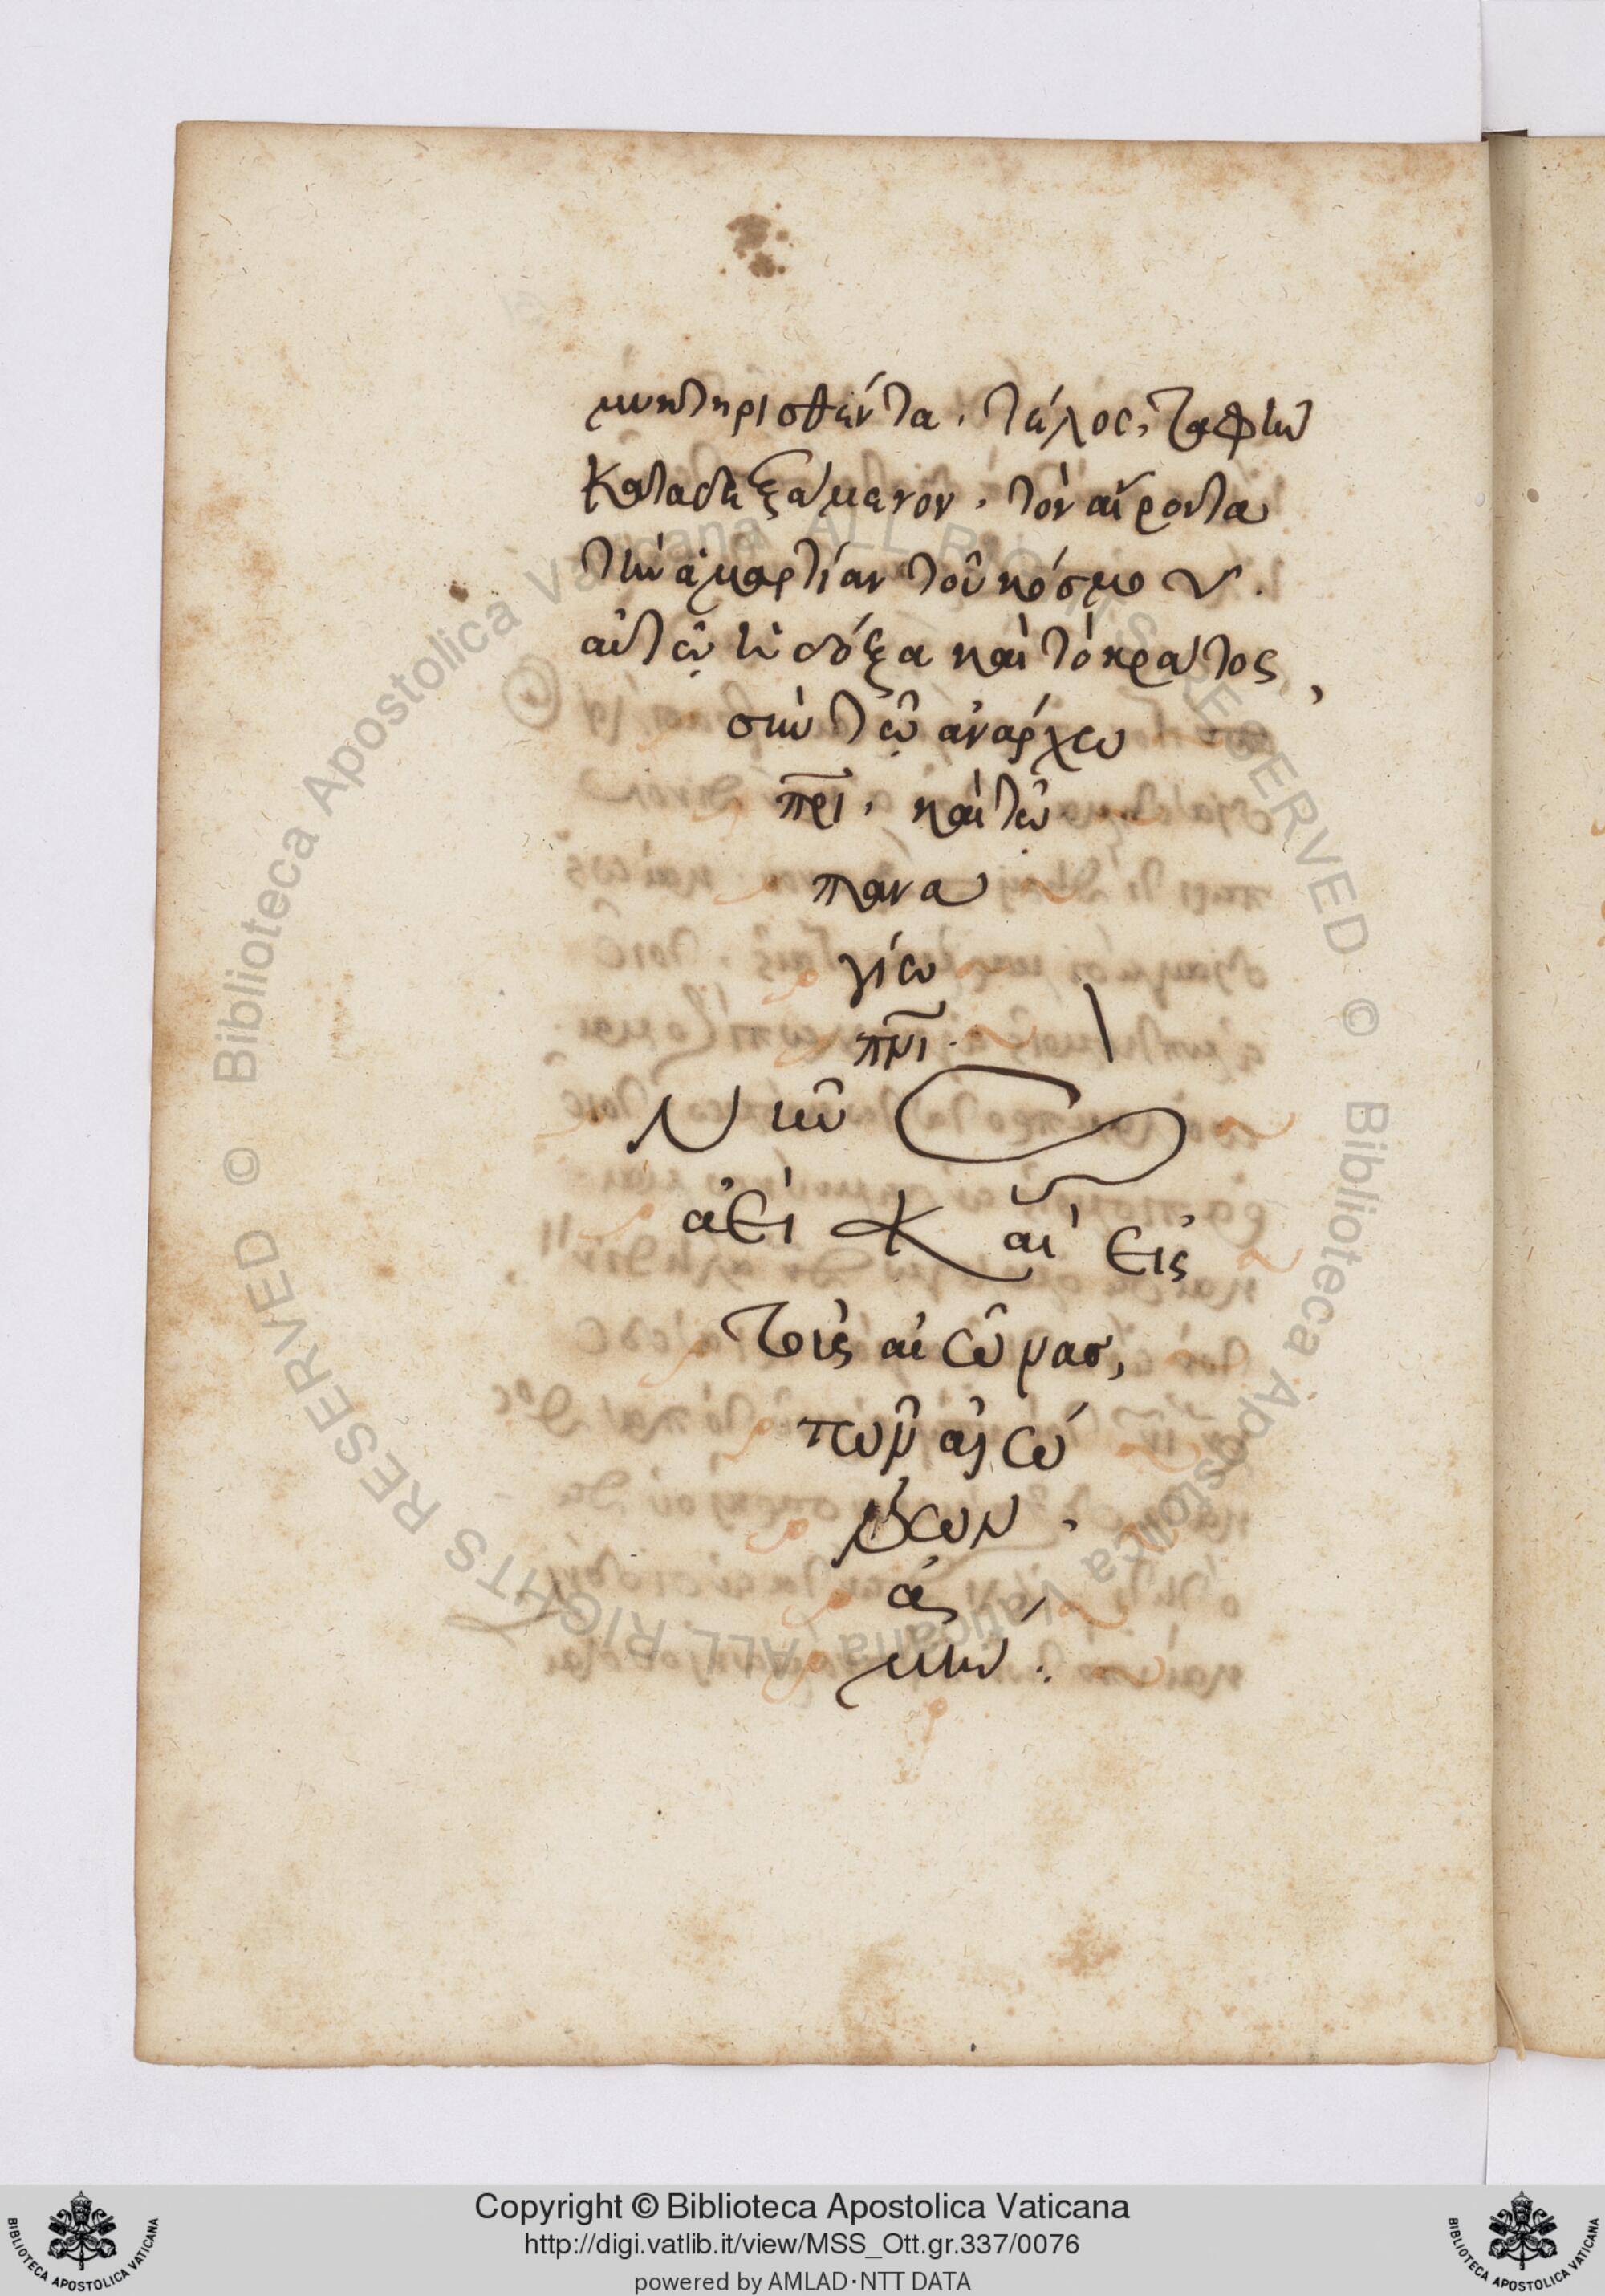 μυκτηρισθέντα. τέλος, ταφὴν
καταδεξάμενον. τὸν αἴροντα
τὴν ἁμαρτίαν τοῦ κόσμου.
αὐτῷ ἡ δόξα καὶ τὸ κράτος,
σὺν τῷ ἀνάρχω
πρι, καὶ τῷ
πανα
γίω
πνι.
Νῦν
ἀεὶ Καὶ εἰς
τοὺς αἰῶνας,
τῶν αἰώ
νων.
ἀ
μήν.
Biblioteca Apostolica Vaticana ALL RIGHTS RESERVED ©
Biblioteca Apostolica Vaticana ALL RIGHTS RESERVED ©
Copyright © Biblioteca Apostolica Vaticana
http://digi.vatlib.it/view/MSS_Ott.gr.337/0076
powered by AMLAD·NTT DATA
BIBLIOTECA APOSTOLICA VATICANA
BIBLIOTECA APOSTOLICA VATICANA